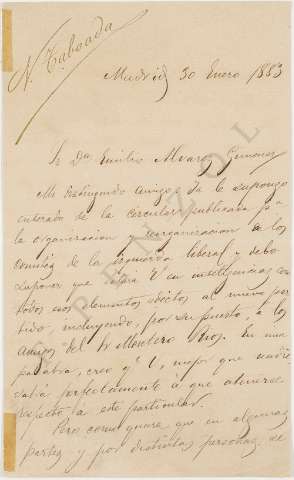 N. Taboada
Madrid 30 Enero 1883
Sr Dn Emilio Alvarez Gimenez
Mi distinguido amigo: da le supongo
enterado de la circular publicada pa
la organizacion y reorganizacion de los
Comités de la izquierda liberal y debo
suponer que estará Vd en inteligencias con
todos los elementos adictos al nuevo par
tido, incluyendo, por supuesto, a los
amigos del Sr Montero Rios. En una
palabra, creo qe V, mejor que nadie
sabrá perfectamente à que atenerse
respecto à este particular.
Pero como quiera que en algunas
partes y por distintas personas, se
PENZOL